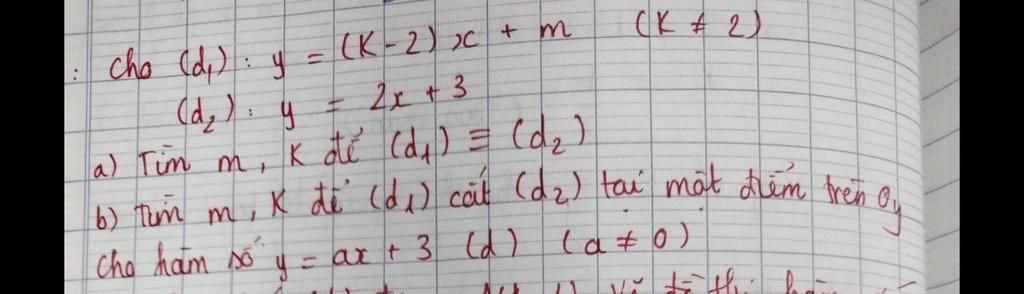 : Cho (d₁): y = (K-2)x + m (K ≠ 2)
(d₂): y = 2x + 3
a) Tìm m, K để (d₁) ≡ (d₂)
b) Tìm m, K để (d₁) cắt (d₂) tại một điểm trên Oy
Cho hàm số y = ax + 3 (d) (a ≠ 0)